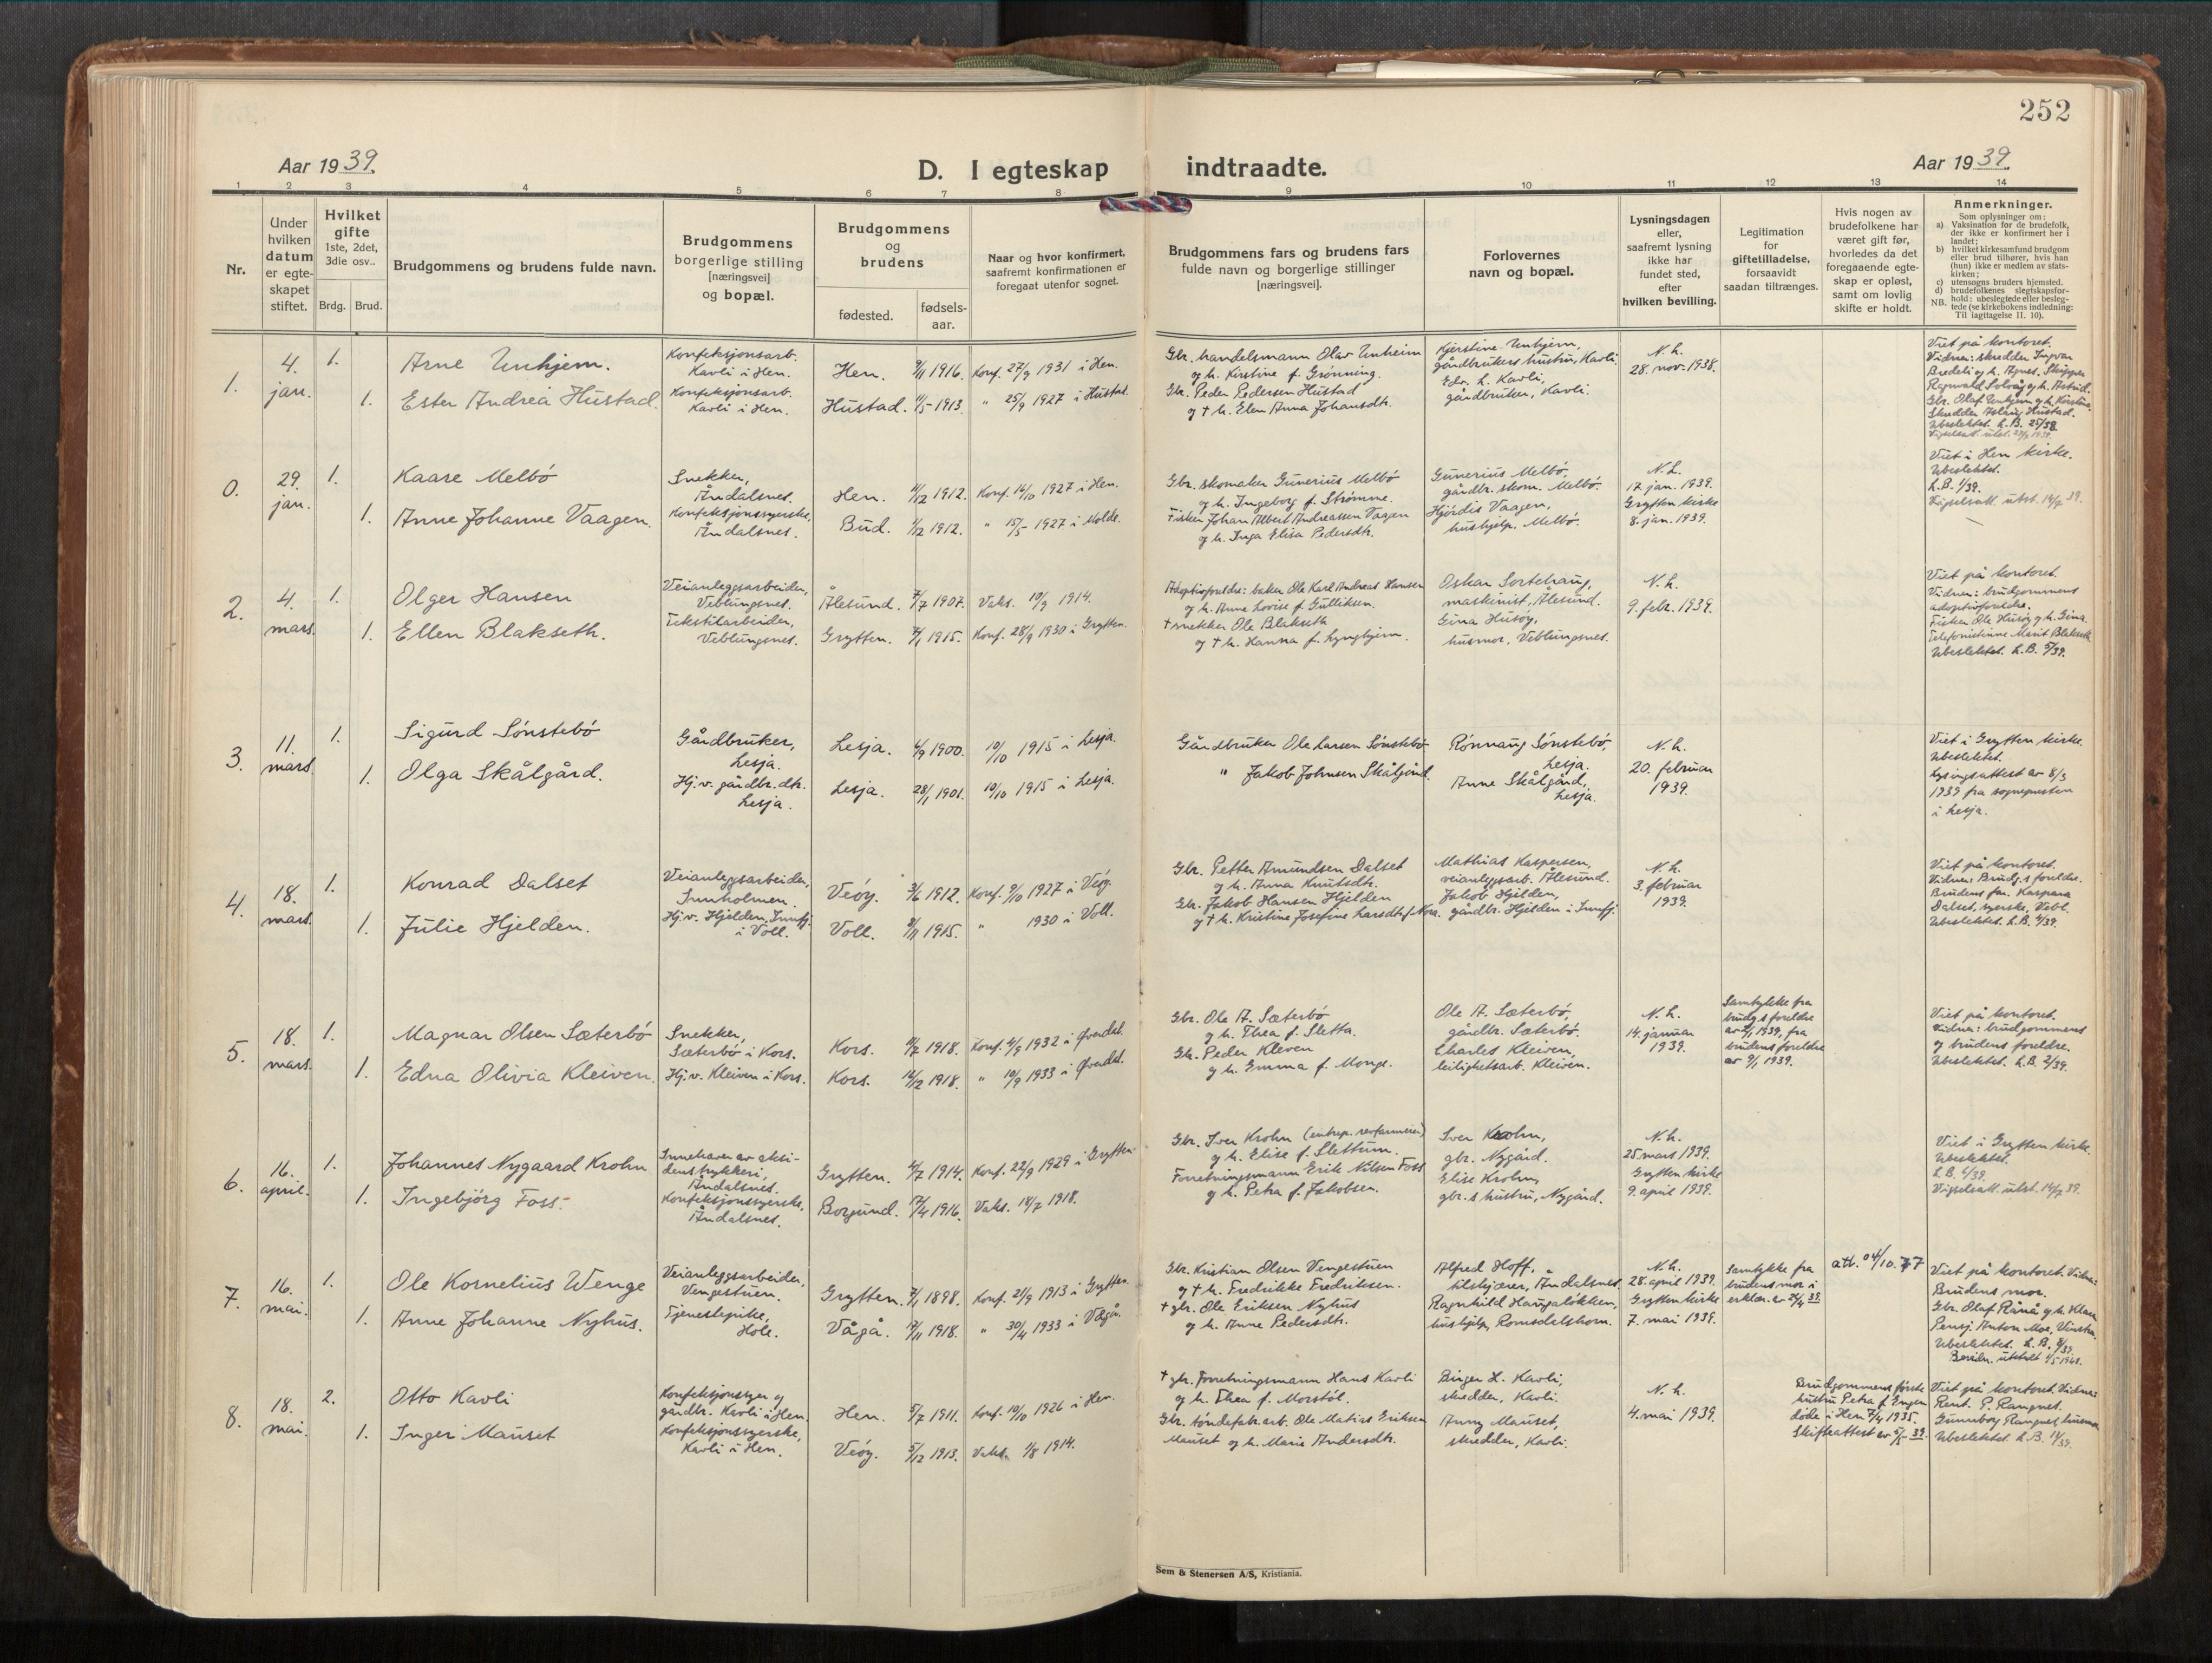 252
Aar 1939.
D. I egteskap indtraadte.
Aar 1939.
1 2 3 4 5 6 7 8 9 10 11 12 13 14
Nr.
Under
hvilken
datum
er egte-
skapet
stiftet.
Hvilket
gifte
1ste, 2det,
3die osv..
Brdg. Brud.
Brudgommens og brudens fulde navn.
Brudgommens
borgerlige stilling
[næringsvei]
og bopæl.
Brudgommens
og
brudens
fødested.
fødsels-
aar.
Naar og hvor konfirmert,
saafremt konfirmationen er
foregaat utenfor sognet.
Brudgommens fars og brudens fars
fulde navn og borgerlige stillinger
[næringsvei].
Forlovernes
navn og bopæl.
Lysningsdagen
eller,
saafremt lysning
ikke har
fundet sted,
efter
hvilken bevilling.
Legitimation
for
giftetilladelse,
forsaavidt
saadan tiltrænges.
Hvis nogen av
brudefolkene har
været gift før,
hvorledes da det
foregaaende egte-
skap er opløst,
samt om lovlig
skifte er holdt.
Anmerkninger.
Som oplysninger om:
a) Vaksination for de brudefolk,
der ikke er konfirmert her i
landet;
b) hvilket kirkesamfund brudgom
eller brud tilhører, hvis han
(hun) ikke er medlem av stats-
kirken;
c) utensogns bruders hjemsted.
d) brudefolkenes slegtskapsfor-
hold: ubeslegtede eller besleg-
NB. tede (se kirkebokens indledning:
Til iagttagelse II. 10).
1.
4.
jan.
1.
1.
Arne Unhjem.
Ester Andrea Hustad.
Konfeksjonsarb.
Kavli i Hen.
Konfeksjonsarb.
Kavli i Hen.
Hen. 9/11 1916. Konf. 27/9 1931 i Hen.
Hustad. 11/5 1913. " 25/9 1927 i Hustad.
Gbr. handelsmann Olav Unheim
og h. Kirstine f. Grønning.
Gbr. Peder Pedersen Hustad
og † h. Elen Anna Johansdtr.
Kjerstine Unhjem,
gårdbrukers hustru, Kavli.
Edv. L. Kavli,
gårdbruker, Kavli.
N. h.
28. nov. 1938.
Viet på kontoret.
Vidner: skredder Ingvar
Bredeli og h. Agnes.
Ragnvald Solvåg og h. Astrid.
Gbr. Olaf Unhjem og h. Kirstine.
Skredder Aslaug Hustad.
Ubeslektet. L.B. 25/38.
0.
29.
jan.
1.
1.
Kaare Melbö
Anne Johanne Vaagen.
Snekker,
Åndalsnes.
Konfeksjonssyerske,
Åndalsnes.
Hen. 4/12 1912. Konf. 14/10 1927 i Hen.
Bud. 1/12 1912. " 15/5 1927 i Molde.
Gbr. skomaker Gunerius Melbö
og h. Ingeborg f. Strømme.
Fisker Johan Albert Andreassen Vaagen
og h. Inga Elisa Pedersdtr.
Gunerius Melbö,
gårdbr. skom. Melbö.
Hjördis Vaagen,
hushjelp, Melbö.
N. h.
17. jan. 1939.
Grytten kirke
8. jan. 1939.
Viet i Hen kirke.
Ubeslektet.
L.B. 1/39.
Vigselsatt. utst. 14/7 39.
2.
4.
mars.
1.
1.
Olger Hansen
Ellen Blakseth.
Veianleggsarbeider,
Veblungsnes.
Tekstilarbeider,
Veblungsnes.
Ålesund. 7/7 1907. Vaks. 10/9 1914.
Grytten. 7/1 1915. Konf. 28/9 1930 i Grytten.
Adoptivforeldre: baker Ole Karl Andreas Hansen
og h. Anne Lovise f. Gulliksen.
† snekker Ole Blakseth
og † h. Hanna f. Lynghjem.
Oskar Sortehaug,
maskinist, Ålesund.
Gina Husöy,
husmor, Veblungsnes.
N. h.
9. febr. 1939.
Viet på kontoret.
Vidner: brudgommens
adoptivforeldre.
Fisker Ole Husöy og h. Gina.
Telefonistinne Marit Blakseth
Ubeslektet. L.B. 5/39.
3.
11.
mars.
1.
1.
Sigurd Sönstebö
Olga Skålgård.
Gårdbruker,
Lesja.
Hj. v. gårdbr. dtr.
Lesja.
Lesja. 4/9 1900. 10/10 1915 i Lesja.
Lesja. 28/1 1901. 10/10 1915 i Lesja.
Gårdbruker Ole Larsen Sönstebö
" Jakob Johnsen Skålgård.
Rönnaug Sönstebö,
Lesja.
Anne Skålgård,
Lesja.
N. h.
20. februar
1939.
Viet i Grytten kirke.
Ubeslektet.
Lysingsattest av 8/3
1939 fra sognepresten
i Lesja.
4.
18.
mars.
1.
1.
Konrad Dalset
Julie Hjelden.
Veianleggsarbeider,
Innholmen.
Hj. v. Hjelden, Innfj.
i Voll.
Veöy. 3/6 1912. Konf. 9/10 1927 i Veöy.
Voll. 8/11 1915. " 1930 i Voll.
Gbr. Petter Amundsen Dalset
og h. Anna Knutsdtr.
Gbr. Jakob Hansen Hjelden
og † h. Kristine Josefine Larsdtr. f. Nora.
Mathias Kaspersen,
veianleggsarb. Ålesund.
Jakob Hjelden,
gårdbr. Hjelden i Innfj.
N. h.
3. februar
1939.
Viet på kontoret.
Vidner: Brudg.s foreldre.
Brudens far. Kaspara
Dalset, syerske, Vebl.
Ubeslektet. L.B. 4/39.
5.
18.
mars.
1.
1.
Magnar Olsen Sæterbö
Edna Olivia Kleiven.
Snekker,
Sæterbö i Kors.
Hj. v. Kleiven i Kors.
Kors. 11/7 1918. Konf. 4/9 1932 i Øverdal.
Kors. 12/2 1918. " 10/9 1933 i Øverdal.
Gbr. Ole A. Sæterbö
og h. Thea f. Sletta.
Gbr. Peder Kleven
og h. Emma f. Monge.
Ole A. Sæterbö,
gårdbr. Sæterbö.
Charles Kleiven,
leilighetsarb. Kleiven.
N. h.
14. januar
1939.
Samtykke fra
brudg.s foreldre
av 9/1 1939, fra
brudens foreldre
av 9/1 1939.
Viet på kontoret.
Vidner: brudgommens
og brudens foreldre.
Ubeslektet. L.B. 2/39.
6.
16.
april.
1.
1.
Johannes Nygaard Krohn
Ingebjörg Foss.
Innehaver av aksi-
denstrykkeri,
Åndalsnes.
Konfeksjonssyerske,
Åndalsnes.
Grytten. 4/7 1914. Konf. 22/9 1929 i Grytten.
Borgund. 17/4 1916. Vaks. 18/7 1918.
Gbr. Iver Krohn
og h. Elise f. Slettum.
Forretningsmann Erik Nilsen Foss
og h. Petra f. Jakobsen.
Iver Krohn,
gbr. Nygård.
Elise Krohn,
gbr.s hustru, Nygård.
N. h.
25. mars 1939.
Grytten kirke
9. april 1939.
Viet i Grytten kirke.
Ubeslektet.
L.B. 6/39.
Vigselsatt. utst. 14/7 39.
7.
16.
mai.
1.
1.
Ole Kornelius Wenge
Anne Johanne Nyhus.
Veianleggsarbeider,
Vengestuen.
Tjenestepike,
Hole.
Grytten. 7/1 1898. Konf. 21/9 1913 i Grytten.
Vågå. 19/11 1918. " 30/4 1933 i Vågå.
Gbr. Kristian Olsen Vengestuen
og † h. Fredrikke Fredriksen.
† gbr. Ole Eriksen Nyhus
og h. Anne Pedersdtr.
Alfred Hoff,
bilskjører, Åndalsnes.
Ragnhild Haugalökken,
hushjelp, Romsdalshorn.
N. h.
28. april 1939.
Grytten kirke
7. mai 1939.
Samtykke fra
brudens mor i
erklær. av 24/4 39.
att. 04/10. 77
Viet på kontoret. Vidner:
Brudens mor.
Gbr. Olaf Rånå og h. Klara
Pensj. Anton Moe, Vinstra.
Ubeslektet. L.B. 8/39.
8.
18.
mai.
2.
1.
Otto Kavli
Inger Mauset
Konfeksjonssyer og
gårdbr. Kavli i Hen.
Konfeksjonssyerske,
Kavli i Hen.
Hen. 5/7 1911. Konf. 10/10 1926 i Hen.
Veöy. 5/12 1913. Vaks. 1/8 1914.
† gbr. Forretningsmann Hans Kavli
og h. Thea f. Morstöl.
Gbr. töndefabr.arb. Ole Matias Eriksen
Mauset og h. Marie Andersdtr.
Birger H. Kavli,
skredder, Kavli.
Anny Mauset,
skredder, Kavli.
N. h.
4. mai 1939.
Brudgommens förste
hustru Petra f. Engen
döde i Hen 7/4 1935.
Skifteattest av 5/5 39.
Viet på kontoret. Vidner:
Rent. P. Rangnes.
Gunnborg Rangnes, husmor
Ubeslektet. L.B. 11/39.
Sem & Stenersen A/S, Kristiania.